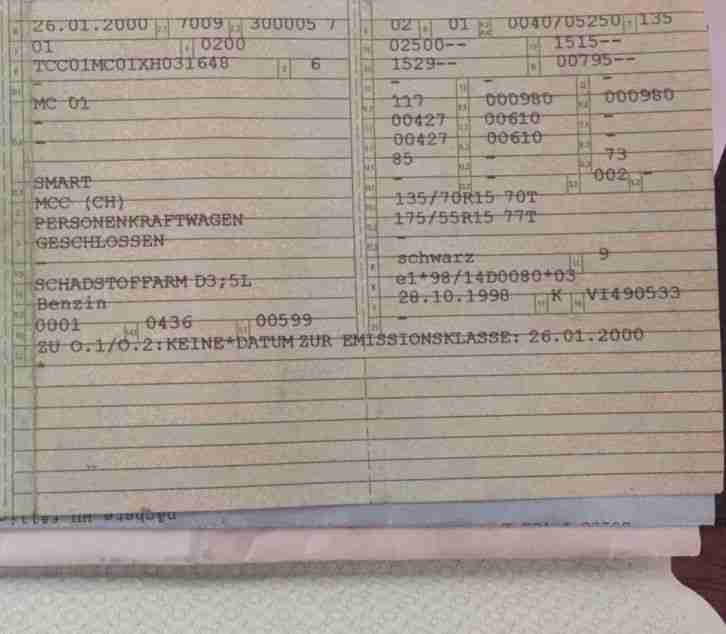 26.01.2000 7009 300005 7
01 0200
TCC01MC01XH031648 6
-
MC 01
-
-
SMART
MCC (CH)
PERSONENKRAFTWAGEN
GESCHLOSSEN
-
SCHADSTOFFARM D3;5L
Benzin
0001 0436 00599
02 01 0040/05250 135
02500-- 1515--
1529-- 00795--
- - -
117 000980 000980
00427 00610 -
00427 00610 -
85 - 73
- - 002 -
135/70R15 70T
175/55R15 77T
-
schwarz 9
e1*98/14D0080*03
28.10.1998 K VI490533
-
ZU O.1/O.2:KEINE*DATUM ZUR EMISSIONSKLASSE: 26.01.2000
*
nächste HU